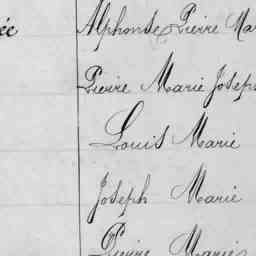 ée Alphonse Pierre Ma
Pierre Marie Joseph
Louis Marie
Joseph Marie
Pierre Marie